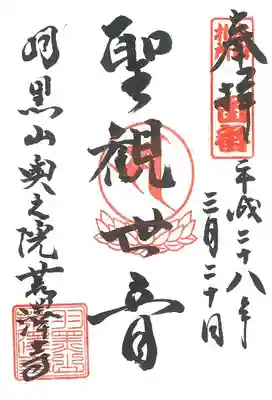 奉拝
平成二十八年
三月二十日
聖観世音
羽黒山奥之院荒澤寺